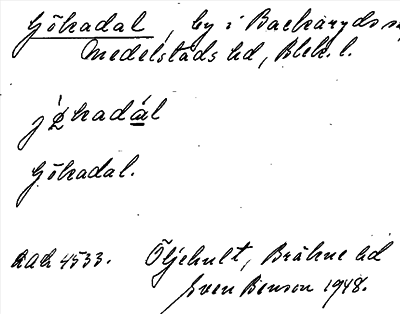 Gökadal, by i Backaryds sn,
Medelstads hd, Blek. l.
Gökadal.
Acc 4533. Öljehult, Bräkne hd
Sven Benson 1948.